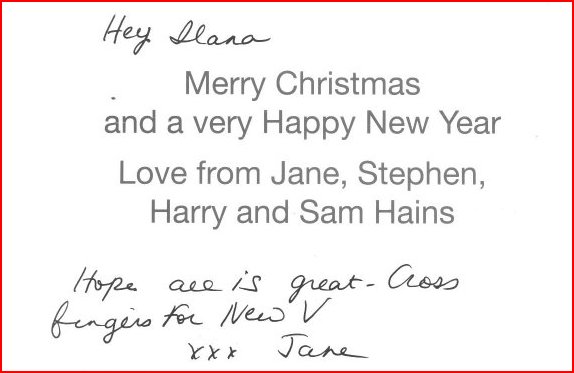 Hey Ilana
Merry Christmas
and a very Happy New Year
Love from Jane, Stephen,
Harry and Sam Hains
Hope all is great - Cross
fingers for New V
xxx Jane